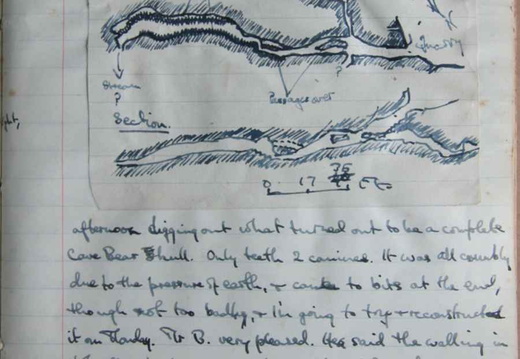 Quarry
Stream
?
?
Passages over
Section.
0 17 75 Ft
afternoon digging out what turned out to be a complete
Cave Bear Skull. Only teeth 2 canines. It was all crumbly
due to the pressure of earth, & came to bits at the end,
though not too badly, & I'm going to try & reconstruct
it on Monday. Mr B. very pleased. He said the walling in